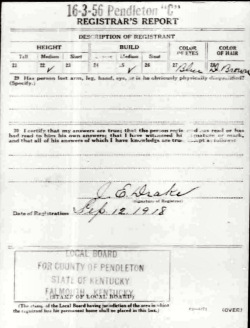 16-3-56 Pendleton "C"
REGISTRAR'S REPORT
DESCRIPTION OF REGISTRANT
HEIGHT BUILD COLOR OF EYES COLOR OF HAIR
Tall Medium Short Slender Medium Stout
21 22 ✓ 23 24 25 ✓ 26 27 Blue 28 D Brown
29 Has person lost arm, leg, hand, eye, or is he obviously physically disqualified?
(Specify.)
30 I certify that my answers are true; that the person registered has read or has
had read to him his own answers; that I have witnessed his signature or mark,
and that all of his answers of which I have knowledge are true, except as follows:
J. E. Drake
(Signature of Registrar)
Date of Registration Sep. 12, 1918
LOCAL BOARD
FOR COUNTY OF PENDLETON
STATE OF KENTUCKY
FALMOUTH, KENTUCKY
(STAMP OF LOCAL BOARD)
(The stamp of the Local Board having jurisdiction of the area in which
the registrant has his permanent home shall be placed in this box.)
(OVER)